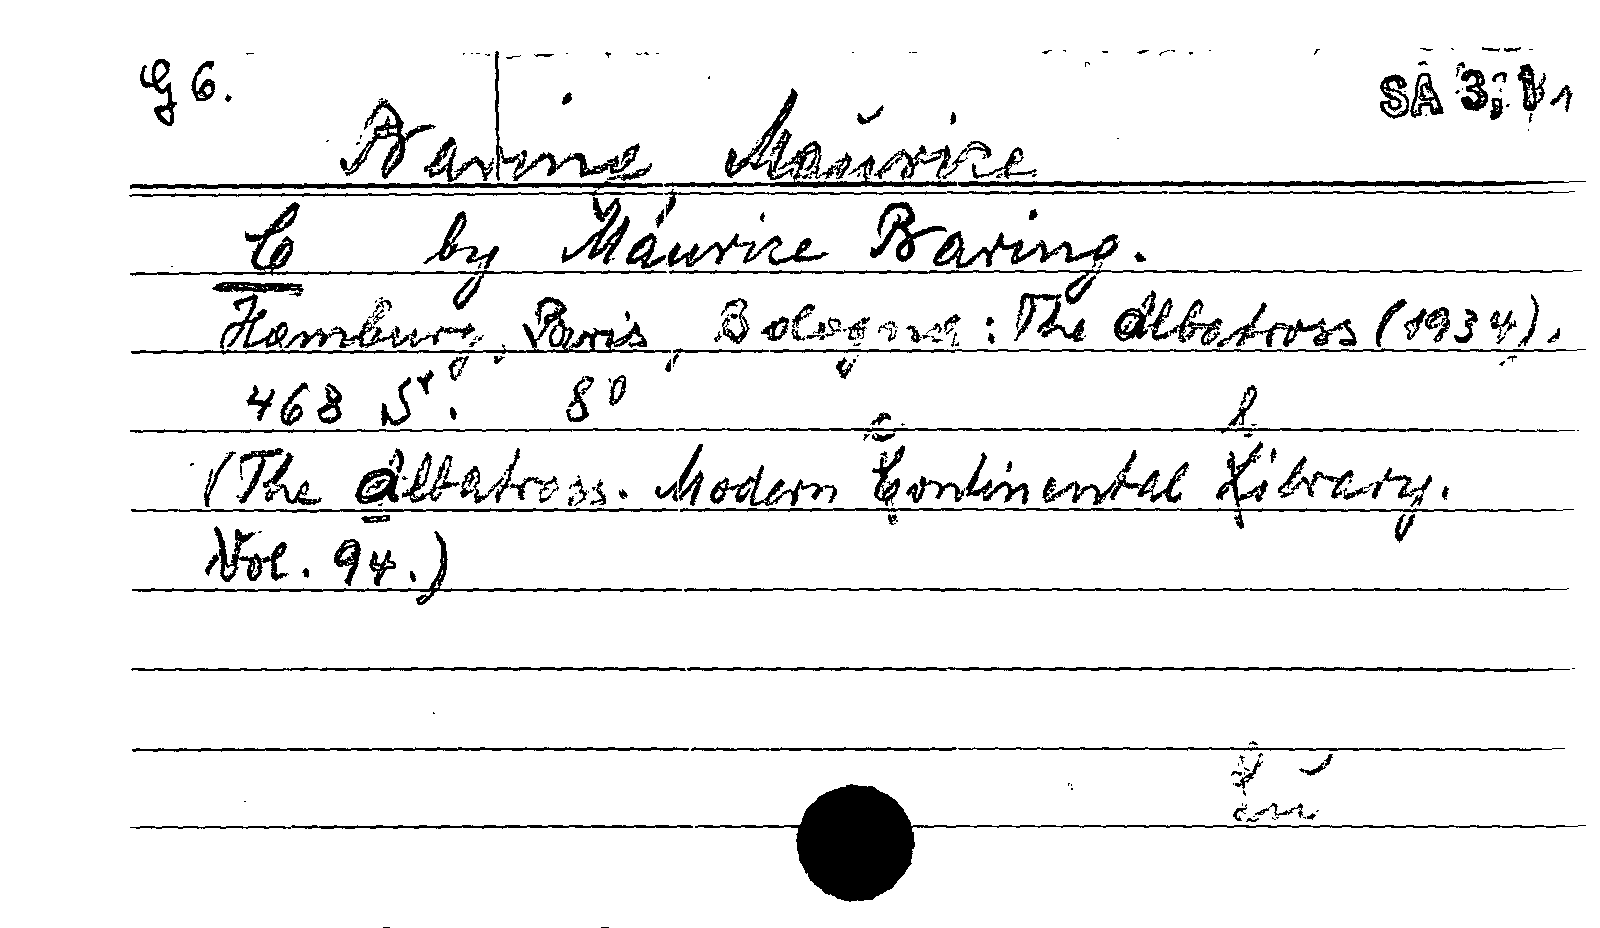 G 6.
SA 3; 1
Baring, Maurice
C by Maurice Baring.
Hamburg, Paris, Bologna: The Albatross (1934).
468 S. 8°
(The Albatross. Modern Continental Library.
Vol. 94.)